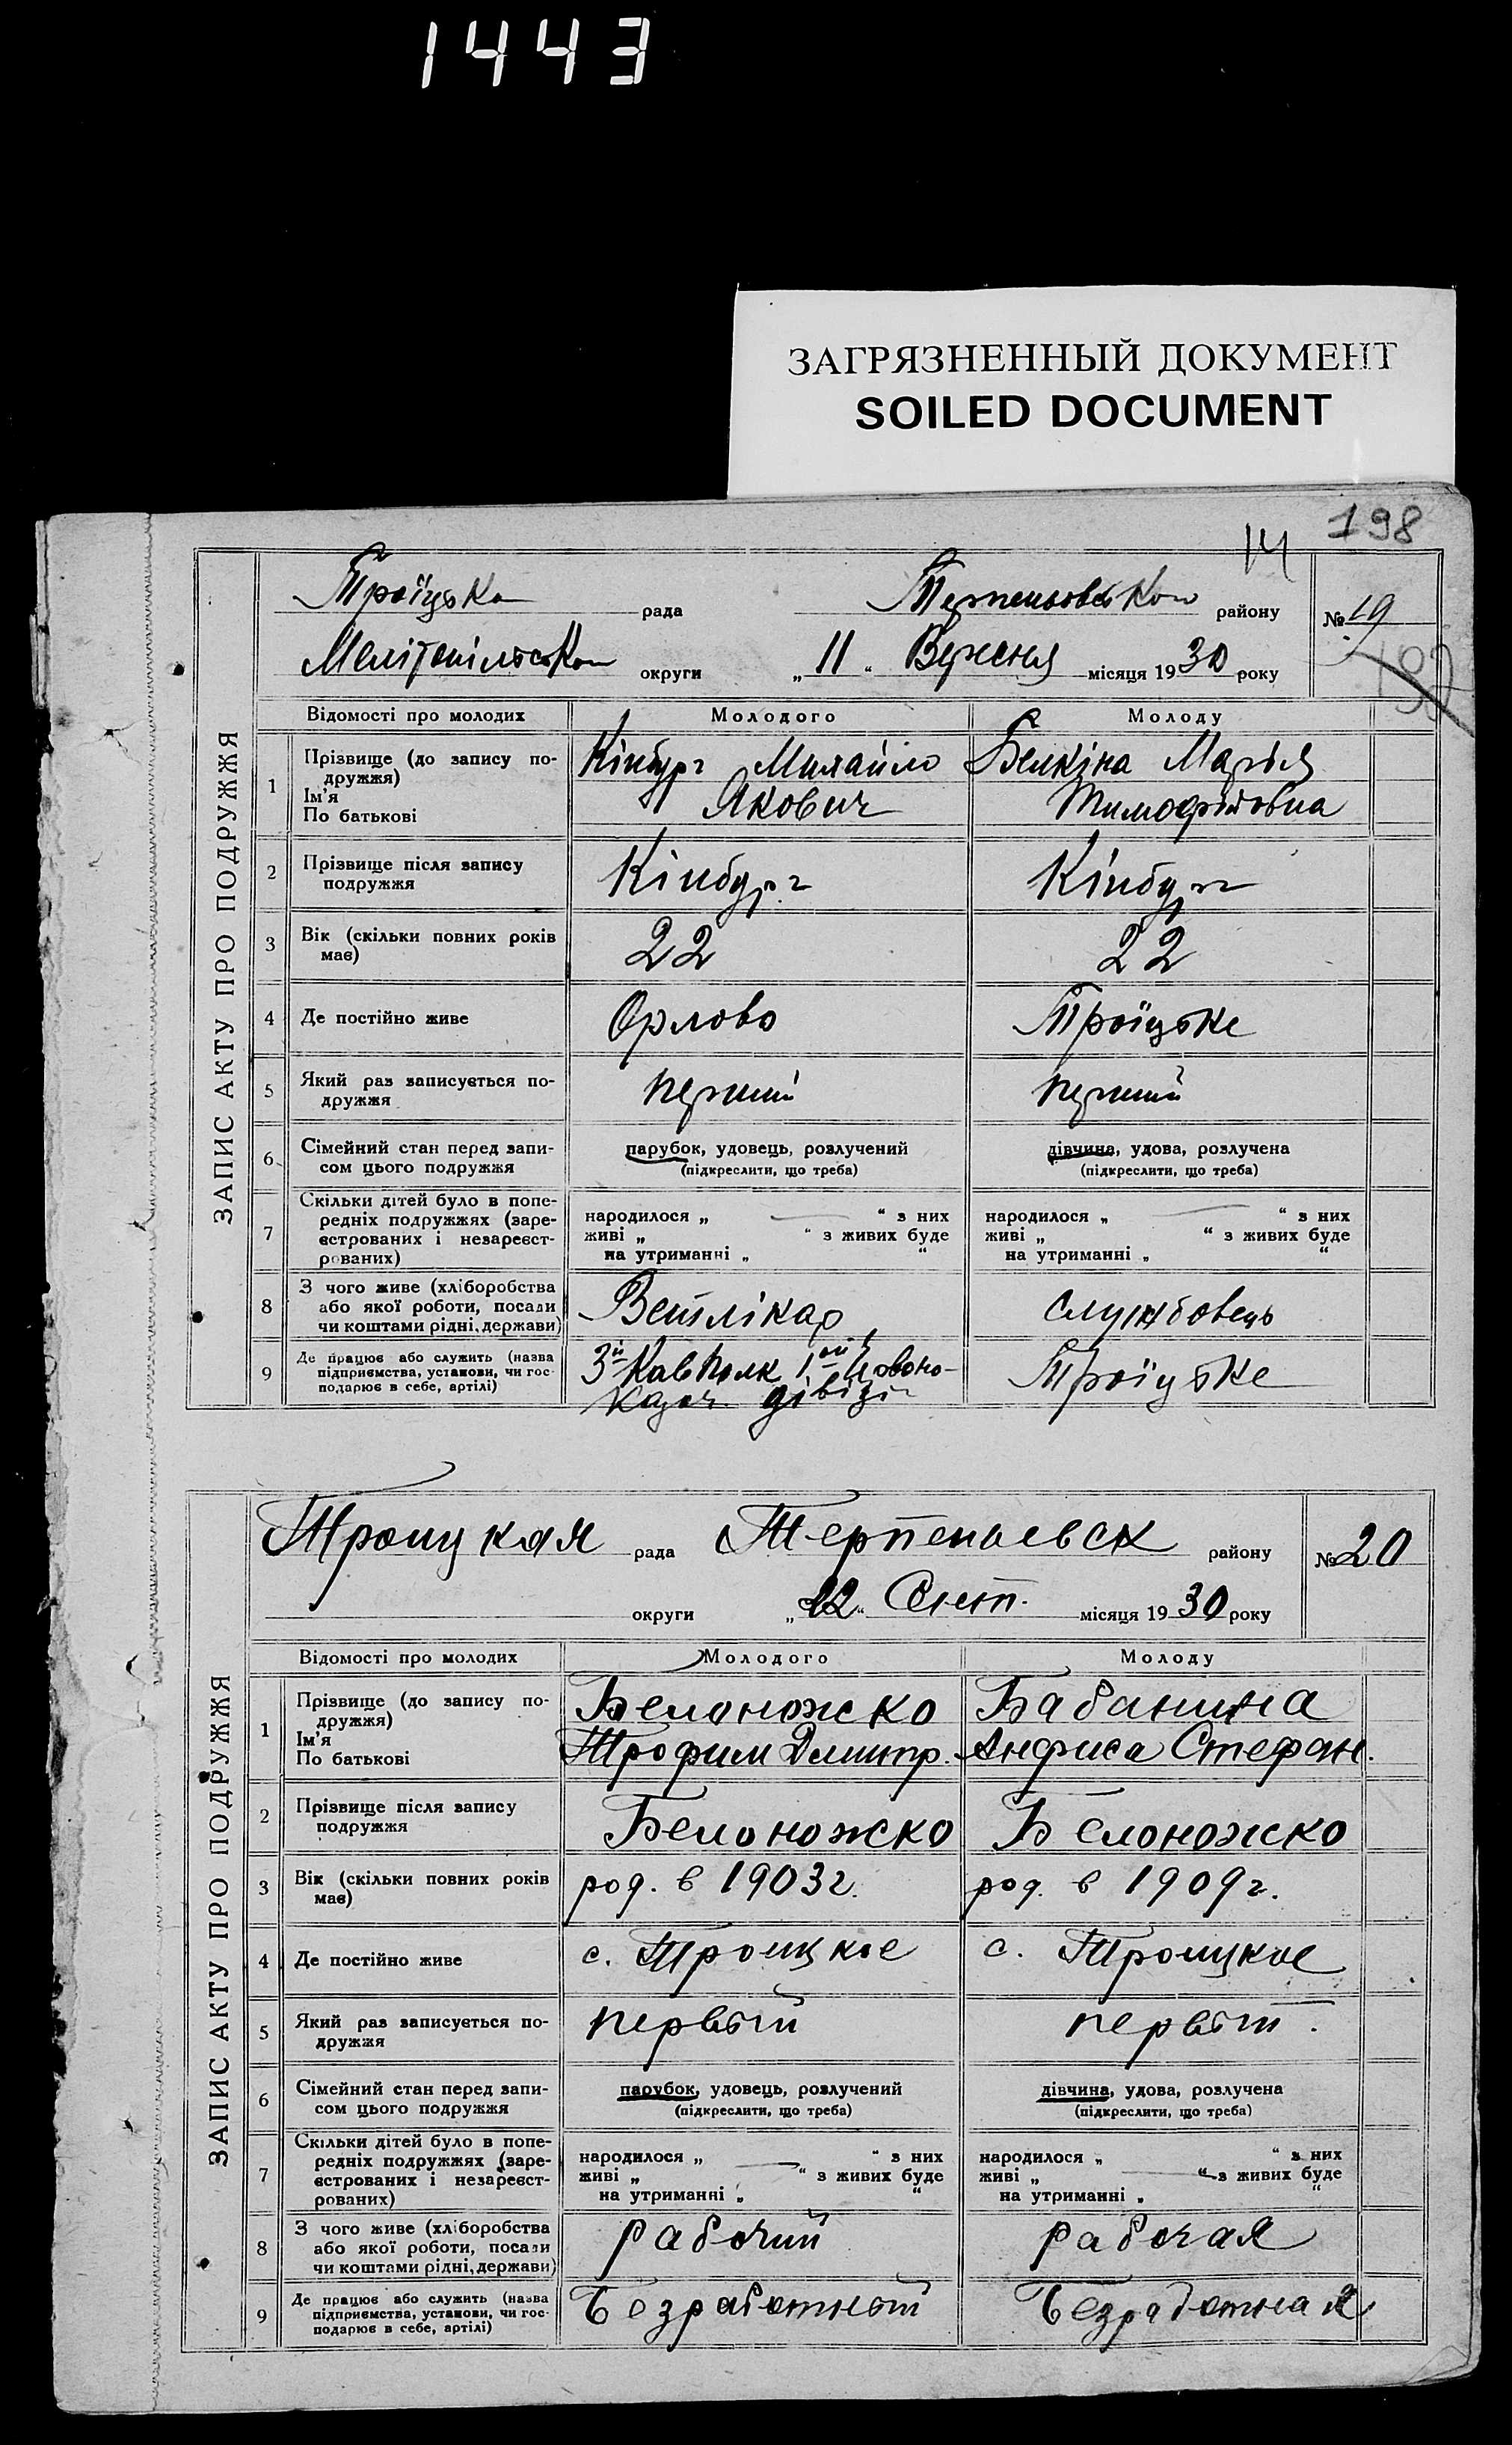 1443
ЗАГРЯЗНЕННЫЙ ДОКУМЕНТ
SOILED DOCUMENT
198
14
Троїцька рада Терпеньовської району № 19
197
Мелітопільської округи „ 11 “ Вересня місяця 19 30 року
ЗАПИС АКТУ ПРО ПОДРУЖЖЯ
Відомості про молодих Молодого Молоду
1 Прізвище (до запису по-
дружжя)
Ім'я
По батькові
Кінбург Михайло
Якович
Белкіна Марія
Тимофіївна
2 Прізвище після запису
подружжя
Кінбург Кінбург
3 Вік (скільки повних років
має)
22 22
4 Де постійно живе Орлово Троїцьке
5 Який раз записується по-
дружжя
перший перший
6 Сімейний стан перед запи-
сом цього подружжя
парубок, удовець, розлучений
(підкреслити, що треба)
дівчина, удова, розлучена
(підкреслити, що треба)
7 Скільки дітей було в попе-
редніх подружжях (заре-
єстрованих і незареєст-
рованих)
народилося „ — “ з них
живі „ “ з живих буде
на утриманні „ “
народилося „ — “ з них
живі „ “ з живих буде
на утриманні „ “
8 З чого живе (хліборобства
або якої роботи, посади
чи коштами рідні, держави)
Ветлікар службовець
9 Де працює або служить (назва
підприємства, установи, чи гос-
подарює в себе, артілі)
3й Кавполк 1ой Човоно-
казач. дівізії
Троїцьке
Троицкая рада Терпеньевск району № 20
округи „ 22 “ Сент. місяця 19 30 року
ЗАПИС АКТУ ПРО ПОДРУЖЖЯ
Відомості про молодих Молодого Молоду
1 Прізвище (до запису по-
дружжя)
Ім'я
По батькові
Белоножско
Трофим Дмитр.
Бабанина
Анфиса Стефан.
2 Прізвище після запису
подружжя
Белоножско Белоножско
3 Вік (скільки повних років
має)
род. в 1903г. род. в 1909г.
4 Де постійно живе с. Троицкое с. Троицкое
5 Який раз записується по-
дружжя
первый первый.
6 Сімейний стан перед запи-
сом цього подружжя
парубок, удовець, розлучений
(підкреслити, що треба)
дівчина, удова, розлучена
(підкреслити, що треба)
7 Скільки дітей було в попе-
редніх подружжях (заре-
єстрованих і незареєст-
рованих)
народилося „ — “ з них
живі „ “ з живих буде
на утриманні „ “
народилося „ — “ з них
живі „ “ з живих буде
на утриманні „ “
8 З чого живе (хліборобства
або якої роботи, посади
чи коштами рідні, держави)
рабочий рабочая
9 Де працює або служить (назва
підприємства, установи, чи гос-
подарює в себе, артілі)
Безработный Безработная